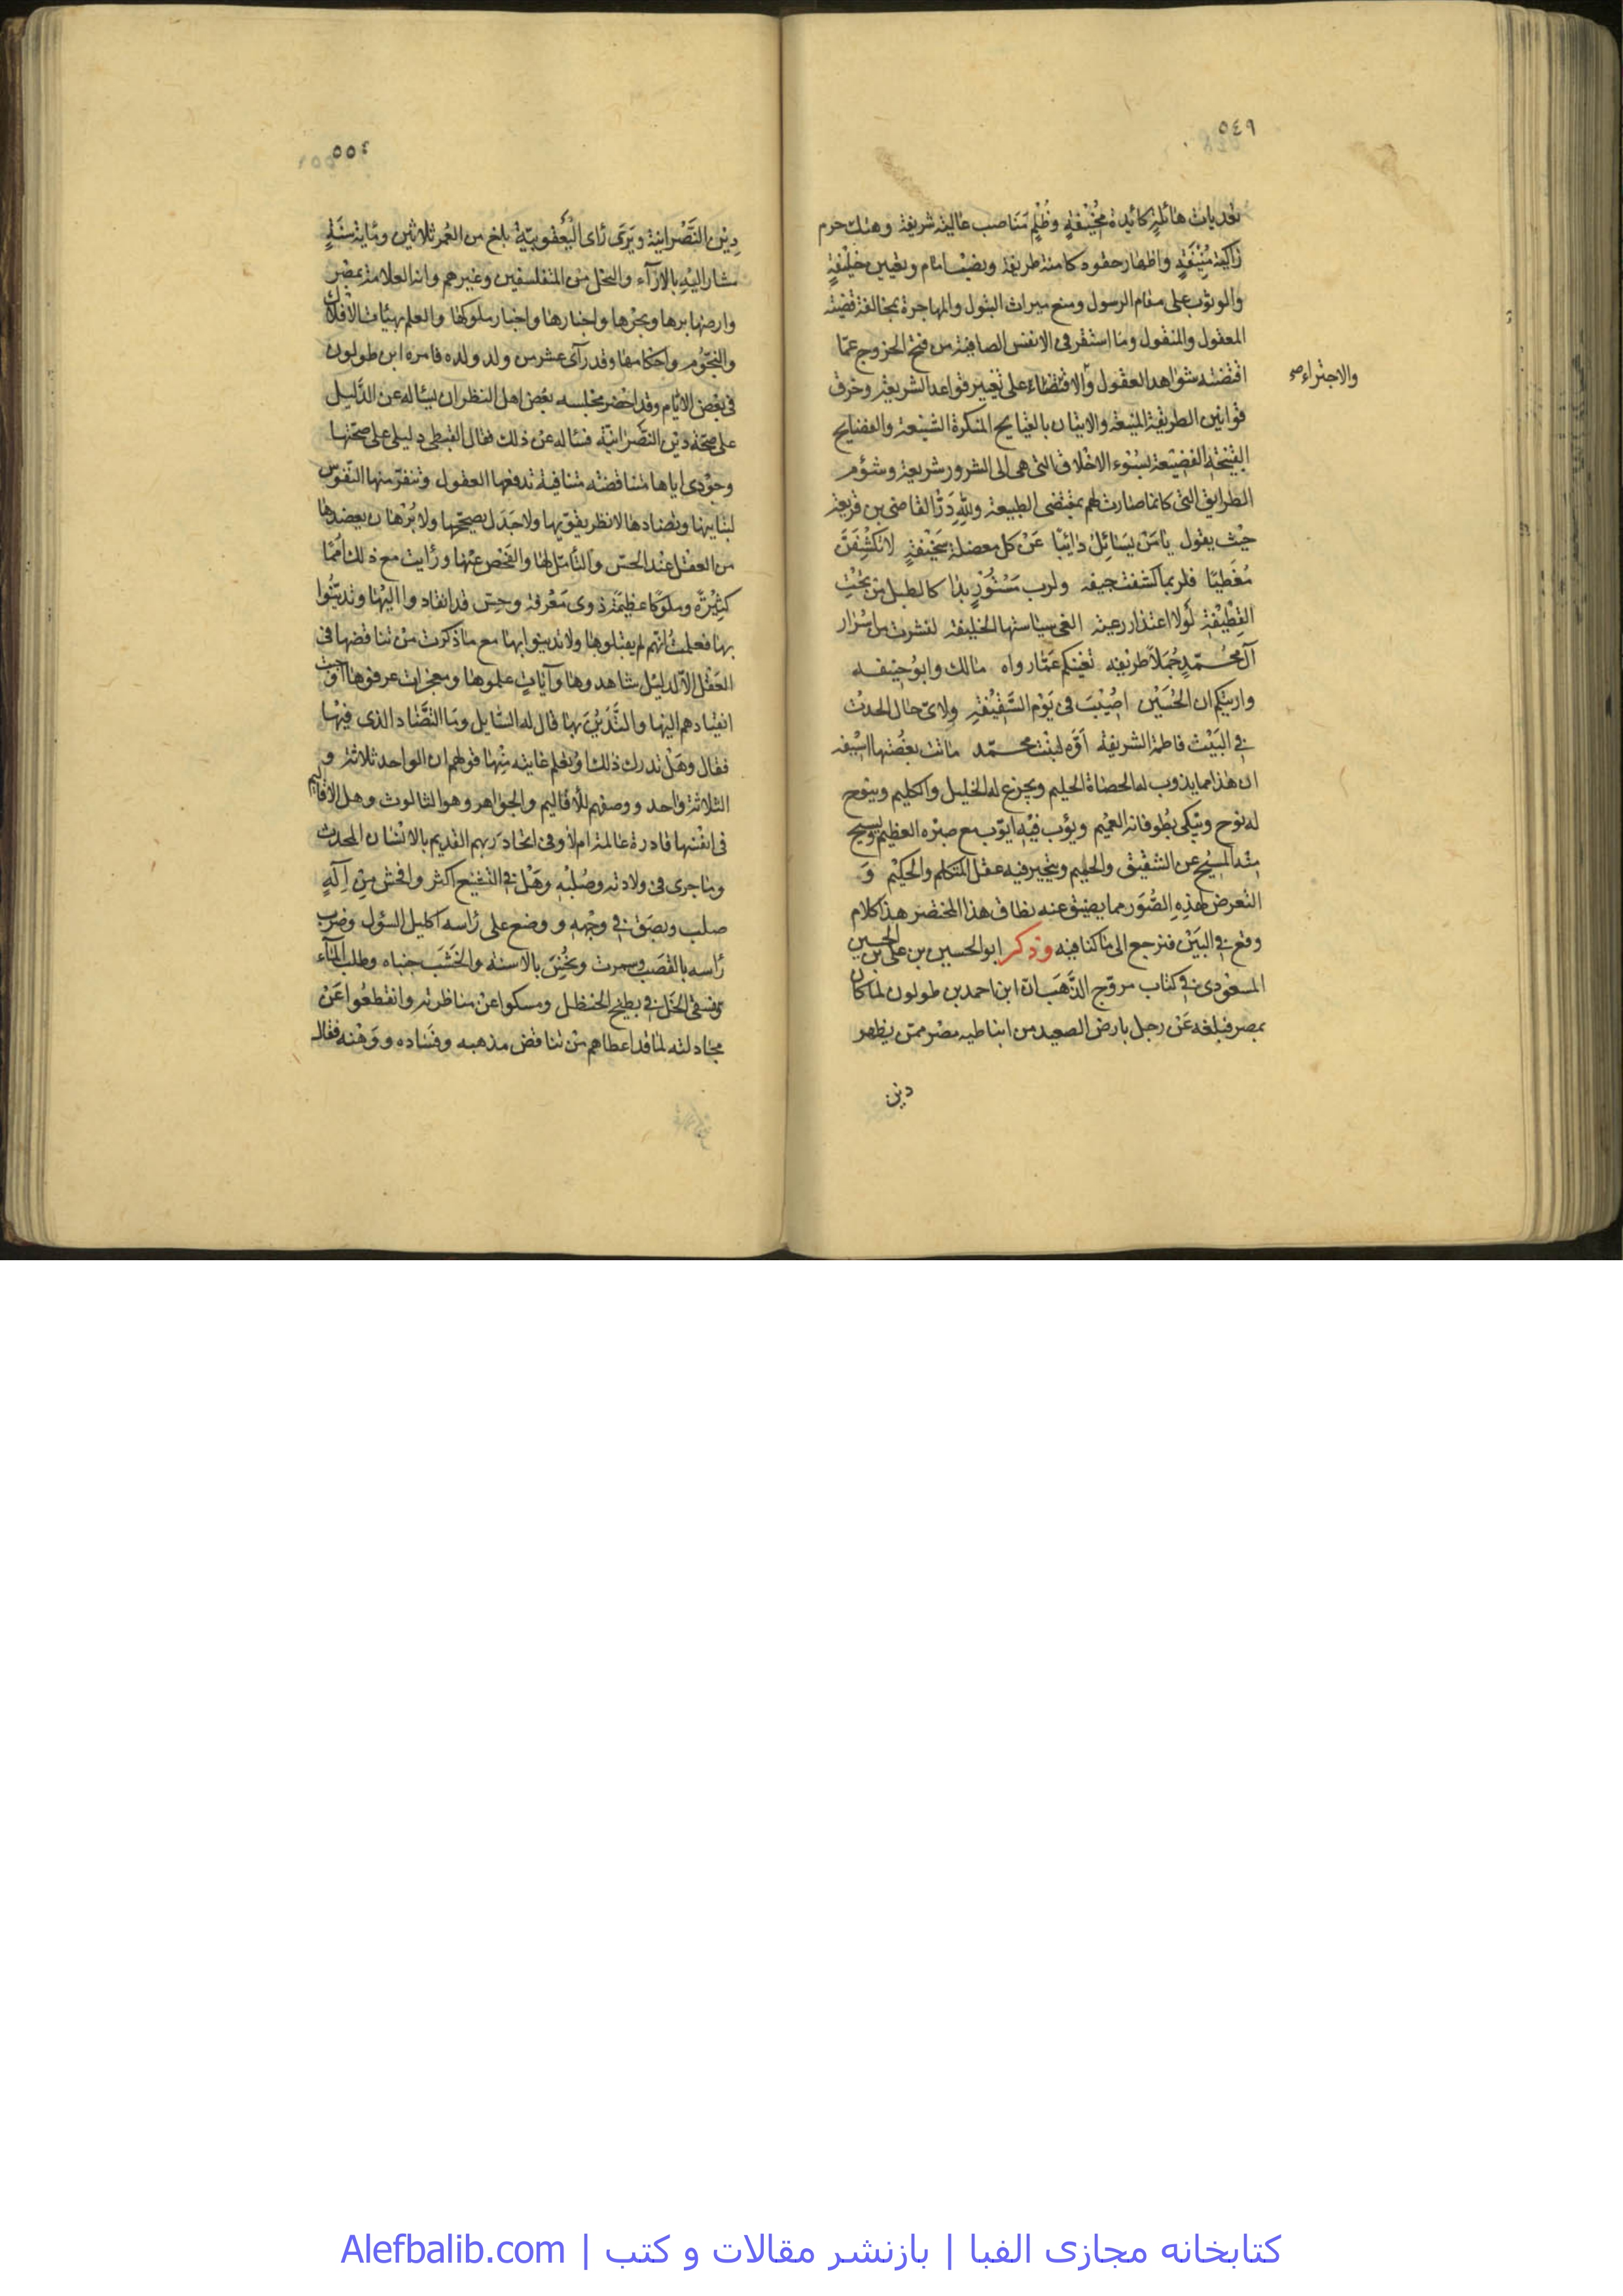 ٥٤٩
تعديات هائلة كائدة مخيفة وظلم مناصب عالية شريفة وهتك حرم
زاكية منيفة واظهار حقود كامنة طريفة ونصب امام وتعيين خليفة
والوثوب على مقام الرسول ومنع ميراث البتول والمهاجرة بمخالفة قضية
المعقول والمنقول وما استقر فى الانفس الصافية من قبح الخروج عما
اقتضته شواهد العقول والاقتضاء على تغيير قواعد الشريعة وخرق
والاجتراء صح
قوانين الطريقة المنيعة والاتيان بالقبايح المنكرة الشنيعة والفضايح
القبيحة الفضيعة لسوء الاخلاق التى هى الى الشرور شريعة وشؤم
الطرايق التى كانما صارت لهم بمقتضى الطبيعة ولله در القاضى بن قريعة
حيث يقول يا من يسائل دائبا عن كل معضلة سخيفة لا تكشفن
مغطيا فلربما كشفت جيفه ولرب مستور بدا كالطبل من تحت
القطيفة لولا اعتذار رعية الغى سياستها الخليفه لنشرت من اسرار
آل محمد جملا طريفه تغنيكم عما رواه مالك وابو حنيفه
واريتكم ان الحسين اصيب فى يوم السقيفة ولاى حال الحدت
فى البيت فاطمة الشريفة آوه لبنت محمد ماتت بغصتها اسيفه
ان هذا مما يذوب له الحصاة الحليم ويجزع له الخليل والكليم وينوح
له نوح ويبكى بطوفانه العميم ويؤب فيه ايوب مع صبره العظيم ويسيح
منه المسيح عن الشقيق والحليم ويتحير فيه عقل المتكلم والحكيم و
التعرض لهذه الصور مما يضيق عنه نطاق هذا المختصر هذا كلام
وقع فى البين فنرجع الى ما كنا فيه وذكر ابو الحسين بن على بن الحسين
المسعودى فى كتاب مروج الذهب ان ابن احمد بن طولون لما كان
بمصر فبلغه عن رجل بارض الصعيد من انباطيه مصر ممن يظهر
دين
٥٥٤
دين النصرانية ويرى راى اليعقوبية بلغ من العمر ثلاثين ومائة سنة
مشار اليه بالاراء والنحل من المتفلسفين وغيرهم وانه العلامة بمصر
وارضها برها وبحرها واخبارها واخبار ملوكها والعلم بهيئات الافلاك
والنجوم واحكامها وقد رآى عشر من ولد ولده فامره ابن طولون
فى بعض الايام وقد احضر مجلسه بعض اهل النظر ان يسئاله عن الدليل
على صحة دين النصرانية فسئاله عن ذلك فقال القبطى دليلى على صحتها
وجودى اياها متناقضة متنافية تدفعها العقول وتنفر منها النفوس
لتباينها وتضادها لا نظر يقويها ولا جدل يصححها ولا برهان يعضدها
من العقل عند الحس والتامل لها والفحص عنها ورايت مع ذلك امما
كثيرة وملوكا عظيمة ذوى معرفة وحس قد انقادوا اليها وتدينوا
بها فعلمت انهم لم يقبلوها ولا تدينوا بها مع ما ذكرت من تناقضها فى
العقل الا لدليل شاهدوها وآيات علموها ومعجزات عرفوها اوجبت
انقيادهم اليها والتدين بها قال له السايل وما التضاد الذى فيها
فقال وهل تدرك ذلك او تعلم غايته منها قولهم ان الواحد ثلاثة و
الثلاثة واحد ووصفهم للاقاليم والجواهر وهو الثالوث وهل الاقاليم
فى انفسها قادرة عالمة ام لا وفى اتحاد ربهم القديم بالانسان المحدث
وما جرى فى ولادته وصلبه وهل فى التشنيع اكثر وافحش من اله
صلب وبصق فى وجهه ووضع على راسه اكليل الشوك وضرب
راسه بالقصب وسمرت ونخس بالاسنة والخشب جنباه وطلب الماء
فسقى الخل فى بطيخ الحنظل ومسكوا عن مناظرته وانقطعوا عن
مجادلته لما قد اعطاهم من تناقض مذهبه وفساده ووهنه فقال
کتابخانه مجازی الفبا | بازنشر مقالات و کتب | Alefbalib.com